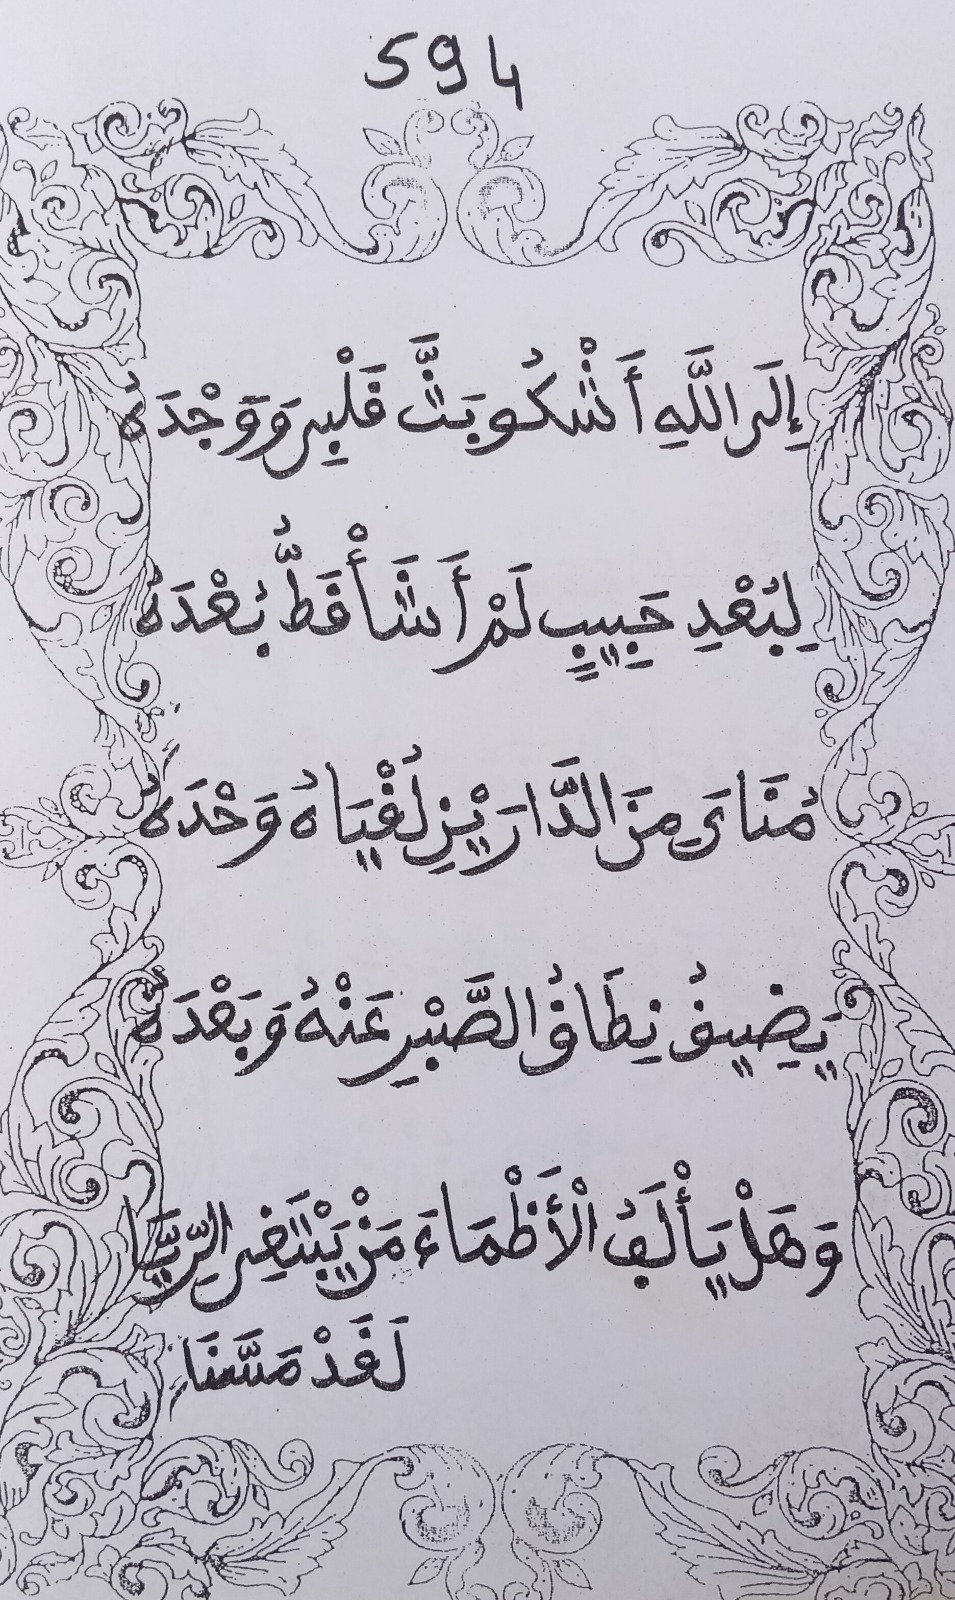 594
إِلَى اللَّهِ أَشْكُو بَثَّ قَلْبِي وَوَجْدَهُ
لِبُعْدِ حَبِيبٍ لَمْ أَشَأْ قَطُّ بُعْدَهُ
مُنَايَ مِنَ الدَّارَيْنِ لُقْيَاهُ وَحْدَهُ
يَضِيقُ نِطَاقُ الصَّبْرِ عَنْهُ وَبَعْدَهُ
وَهَلْ يَأْلَفُ الْأَظْمَاءَ مَنْ يَبْتَغِي الرِّيَّا
لَقَدْ مَسَّنَا